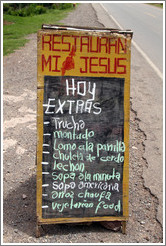 RESTAURAN
MI JESUS
HOY
EXTRAS
- Trucha
- montado
- Lomo a la parrilla
- chuleta de cerdo
- lechon
- sopa a la minuta
- sopa americana
- arroz chaufa
- vegetarian food